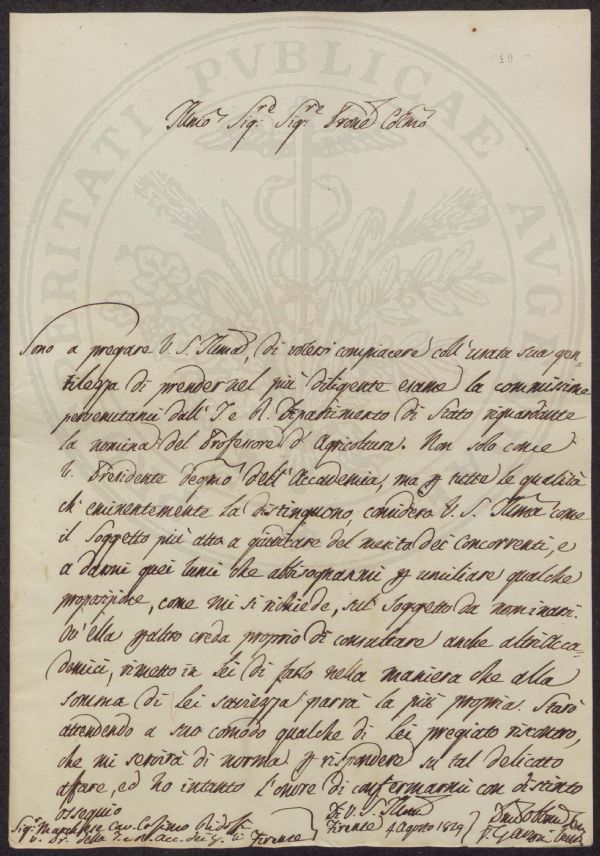 19
Illmo Sigre Sigre Prone Colmo
Sono a pregare V. S. Illma, di volersi compiacere coll'usata sua gen-
tilezza di prender nel più diligente esame la commissione
pervenutami dall'I e R. Dipartimento di Stato riguardante
la nomina del Professore d'Agricoltura. Non solo come
V. Presidente degmo dell'Accademia, ma p tutte le qualità
ch'eminentemente la distinguono, considero V. S. Illma come
il soggetto più atto a giudicare del merito dei Concorrenti, e
a darmi quei lumi che abbisognanmi p umiliare qualche
proposizione, come mi si richiede, sul Soggetto da nominarsi.
Ov'Ella p altro creda proprio di consultare anche altri Acca-
demici, rimetto in Lei di farlo nella maniera che alla
somma di Lei saviezza parrà la più propria. Starò
attendendo a suo comodo qualche di Lei pregiato riscontro,
che mi servirà di norma p rispondere su tal delicato
affare, ed ho intanto l'onore di confermarmi con distinto
ossequio
Di V. S. Illma
Sigr Marchese Cav. Cosimo Ridolfi
V. Pr. della I. e R. Acc. dei G. di Firenze
Firenze 4 Agosto 1829